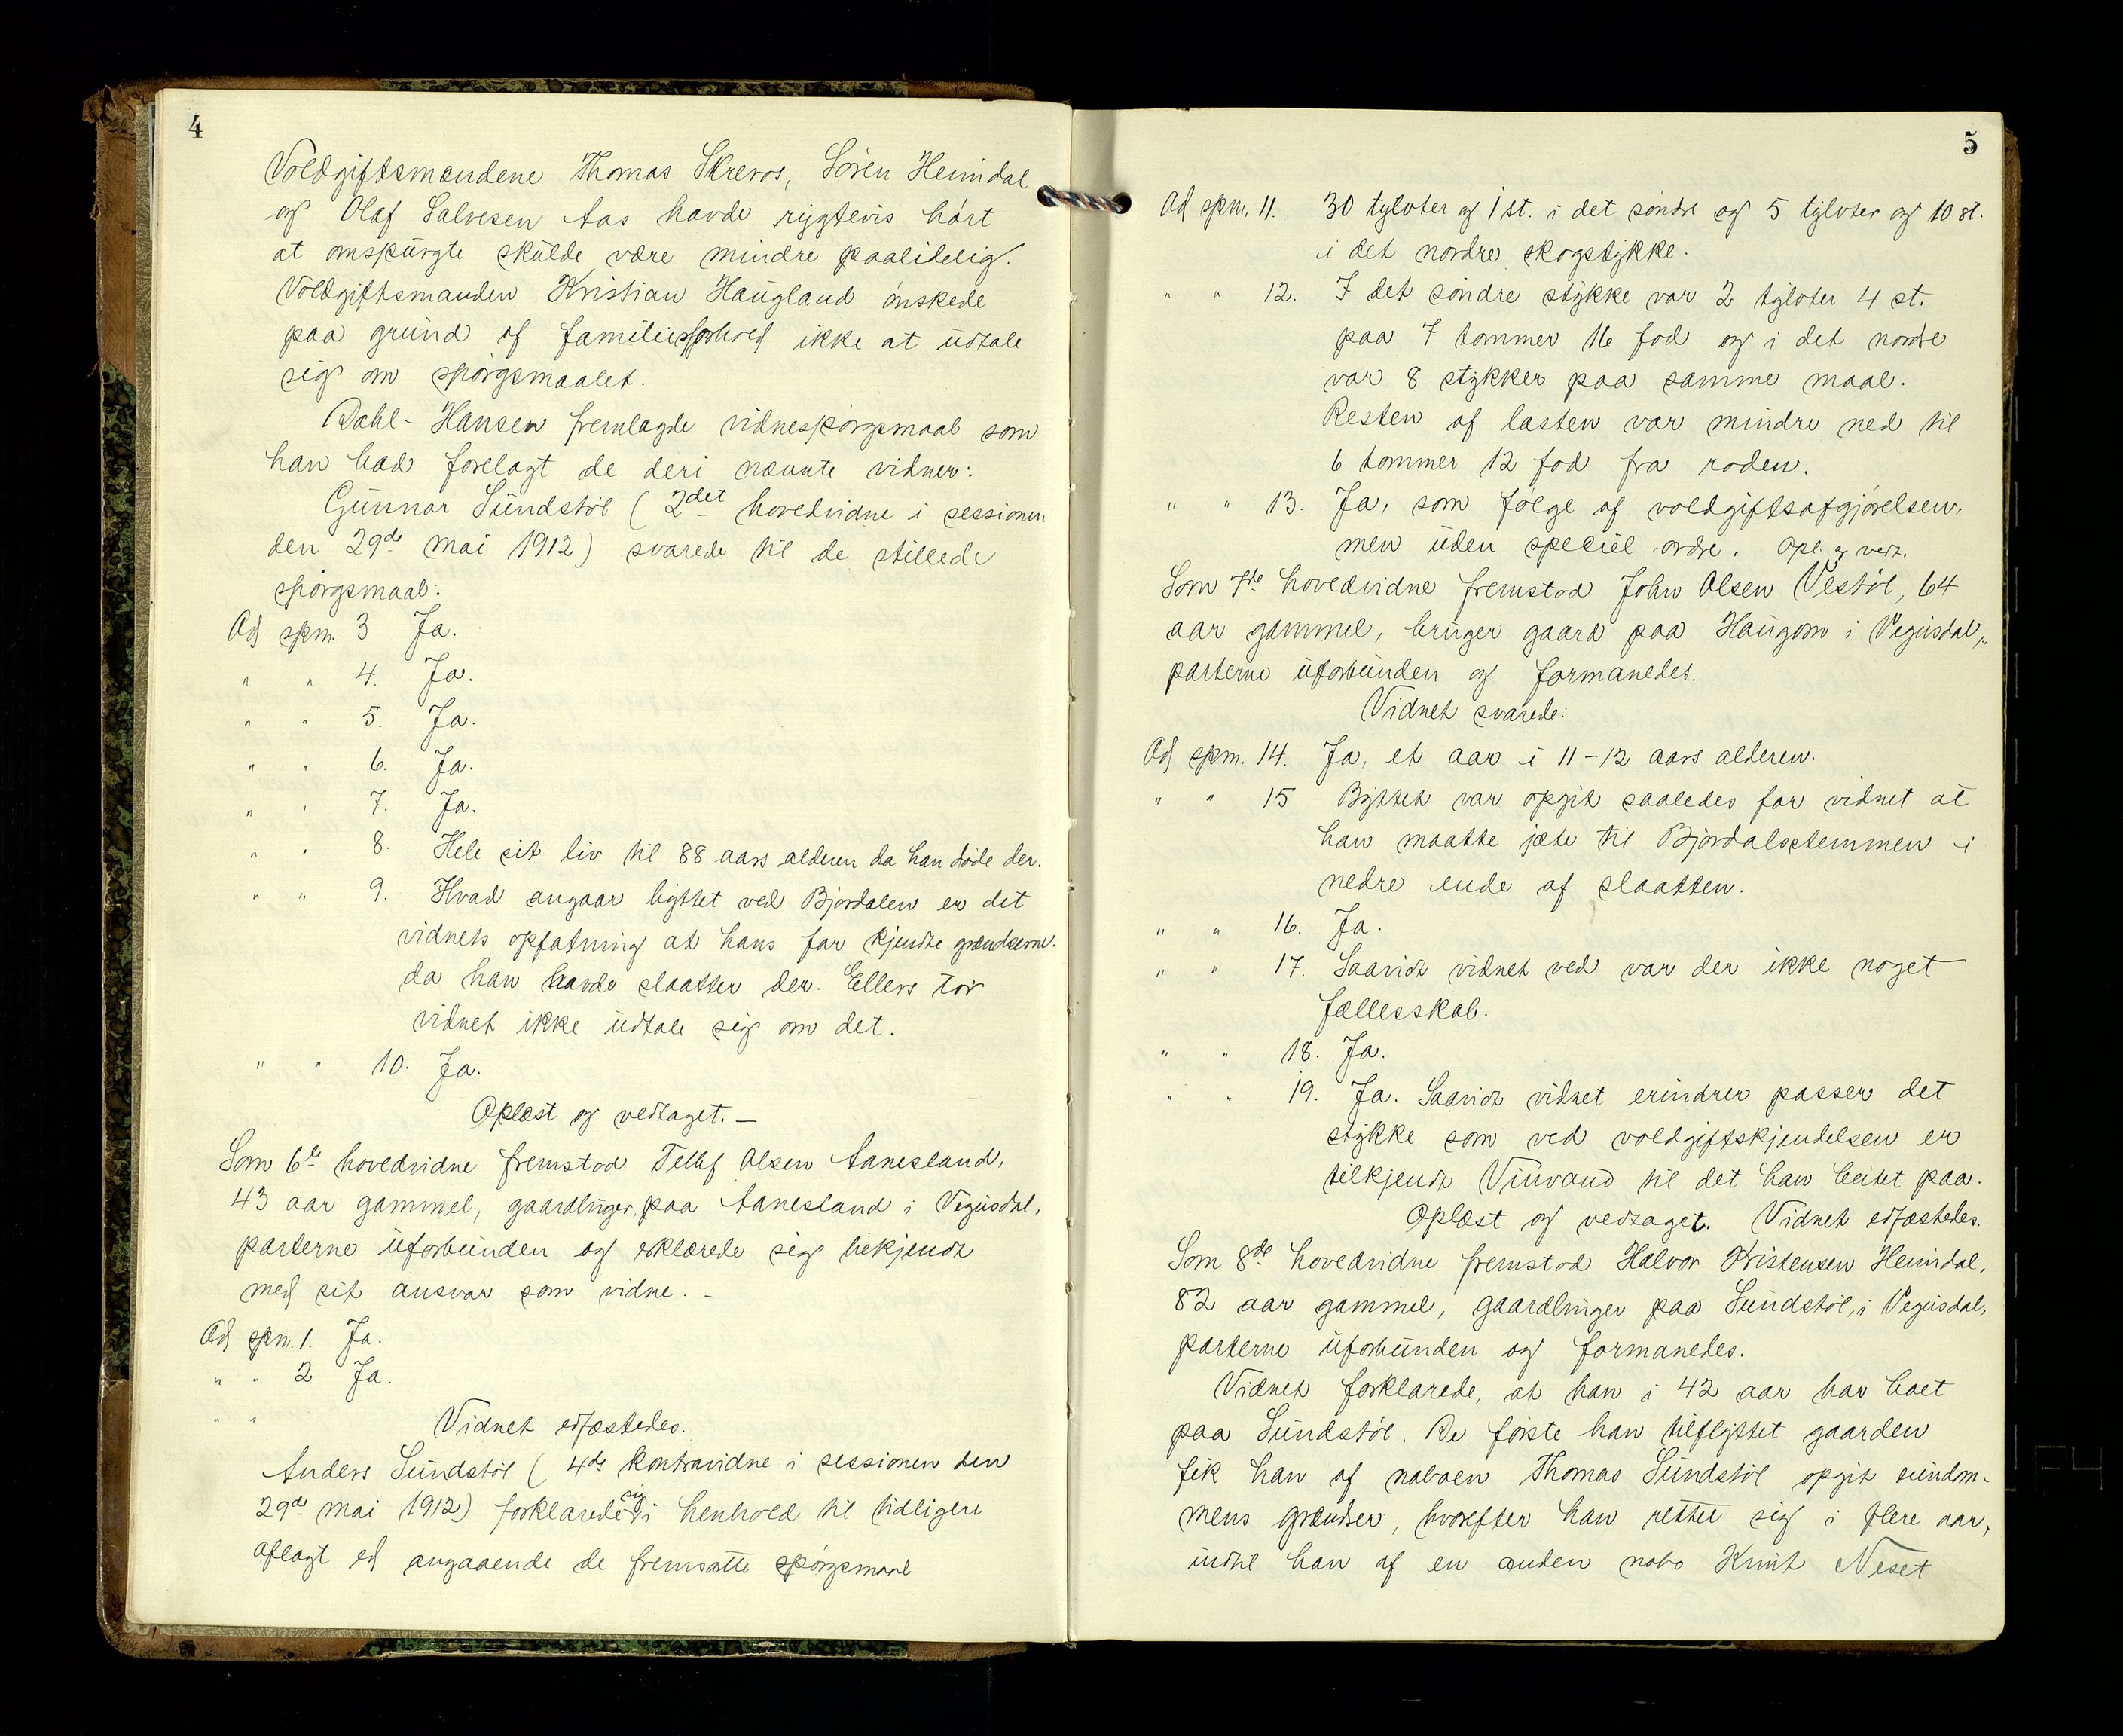 4
Voldgiftsmændene Thomas Skreros, Søren Heimdal
og Olaf Salvesen Aas havde rygtevis hørt
at omspurgte skulde være mindre paalitelig.
Voldgiftsmanden Kristian Haugland ønskede
paa grund af familieforhold ikke at udtale
sig om spørgsmaalet.
Dahl-Hansen fremlagde vidnespørgsmaal som
han bad forelagt de deri nævnte vidner:
Gunnar Sundstøl (2det hovedvidne i sessionen
den 29de mai 1912) svarede til de stillede
spørgsmaal:
Ad spm. 3 Ja.
" " 4. Ja.
" " 5. Ja.
" " 6. Ja.
" " 7. Ja.
" " 8. Hele sit liv til 88 aars alderen da han døde der.
" " 9. Hvad angaar byttet ved Bjordalen er det
vidnets opfatning at hans far kjendte grændserne.
da han havde slaatten der. Ellers tør
vidnet ikke udtale sig om det.
" " 10. Ja.
Oplæst og vedtaget. —
Som 6te hovedvidne fremstod Tellef Olsen Aanesland,
43 aar gammel, gaardbruger, paa Aanesland i Vegusdal,
parterne uforbunden og erklærede sig bekjendt
med sit ansvar som vidne. -
Ad spm. 1. Ja.
" " 2 Ja.
" "
Vidnet edfæstedes.
Anders Sundstøl (4de kontravidne i sessionen den
29de mai 1912) forklarede sig i henhold til tidligere
aflagt ed angaaende de fremsatte spørgsmaal
5
Ad spm. 11. 30 tylvter og 1 st. i det søndre og 5 tylvter og 10 st.
i det nordre skogstykke.
" " 12. I det søndre stykke var 2 tylvter 4 st.
paa 7 tommer 16 fod og i det nordre
var 8 stykker paa samme maal.
Resten af lasten var mindre ned til
6 tommer 12 fod fra roden.
" " 13. Ja, som følge af voldgiftsafgjørelsen,
men uden speciel ordre. Opl. og vedt.
Som 7de hovedvidne fremstod John Olsen Vestøl, 64
aar gammel, bruger gaard paa Haugom i Vegusdal,
parterne uforbunden og formanedes.
Vidnet svarede:
Ad spm. 14. Ja, et aar i 11-12 aars alderen.
" " 15 Byttet var opgit saaledes for vidnet at
han maatte jæte til Bjordalsstemmen i
nedre ende af slaatten.
" " 16. Ja.
" " 17. Saavidt vidnet ved var der ikke noget
fællesskab.
" " 18. Ja.
" " 19. Ja. Saavidt vidnet erindrer passer det
stykke som ved voldgiftskjendelsen er
tilkjendt Vinvand til det han beitet paa.
Oplæst og vedtaget. Vidnet edfæstedes.
Som 8de hovedvidne fremstod Halvor Kristensen Heimdal,
82 aar gammel, gaardbruger paa Sundstøl, i Vegusdal,
parterne uforbunden og formanedes.
Vidnet forklarede, at han i 42 aar har boet
paa Sundstøl. Da første han tilflyttet gaarden
fik han af naboen Thomas Sundstøl opgit eiendom-
mens grændser, hvorefter han rettet sig i flere aar,
indtil han af en anden nabo Knut Neset